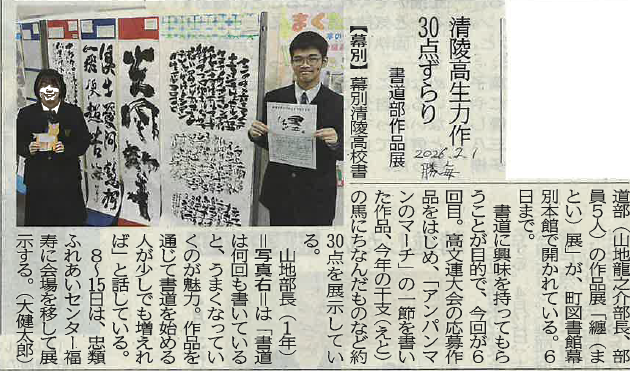 清陵高生力作
30点ずらり
書道部作品展
2026.2.1
勝毎
【幕別】幕別清陵高校書
道部（山地龍之介部長、部
員５人）の作品展「纏（ま
とい）展」が、町図書館幕
別本館で開かれている。６
日まで。
書道に興味を持ってもら
うことが目的で、今回が６
回目。高文連大会の応募作
品をはじめ、「アンパンマ
ンのマーチ」の一節を書い
た作品、今年の干支（えと）
の馬にちなんだものなど約
30点を展示してい
る。
山地部長（１年）
＝写真右＝は「書道
は何回も書いている
と、うまくなってい
くのが魅力。作品を
通じて書道を始める
人が少しでも増えれ
ば」と話している。
８～15日は、忠類
ふれあいセンター福
寿に会場を移して展
示する。（大健太郎）